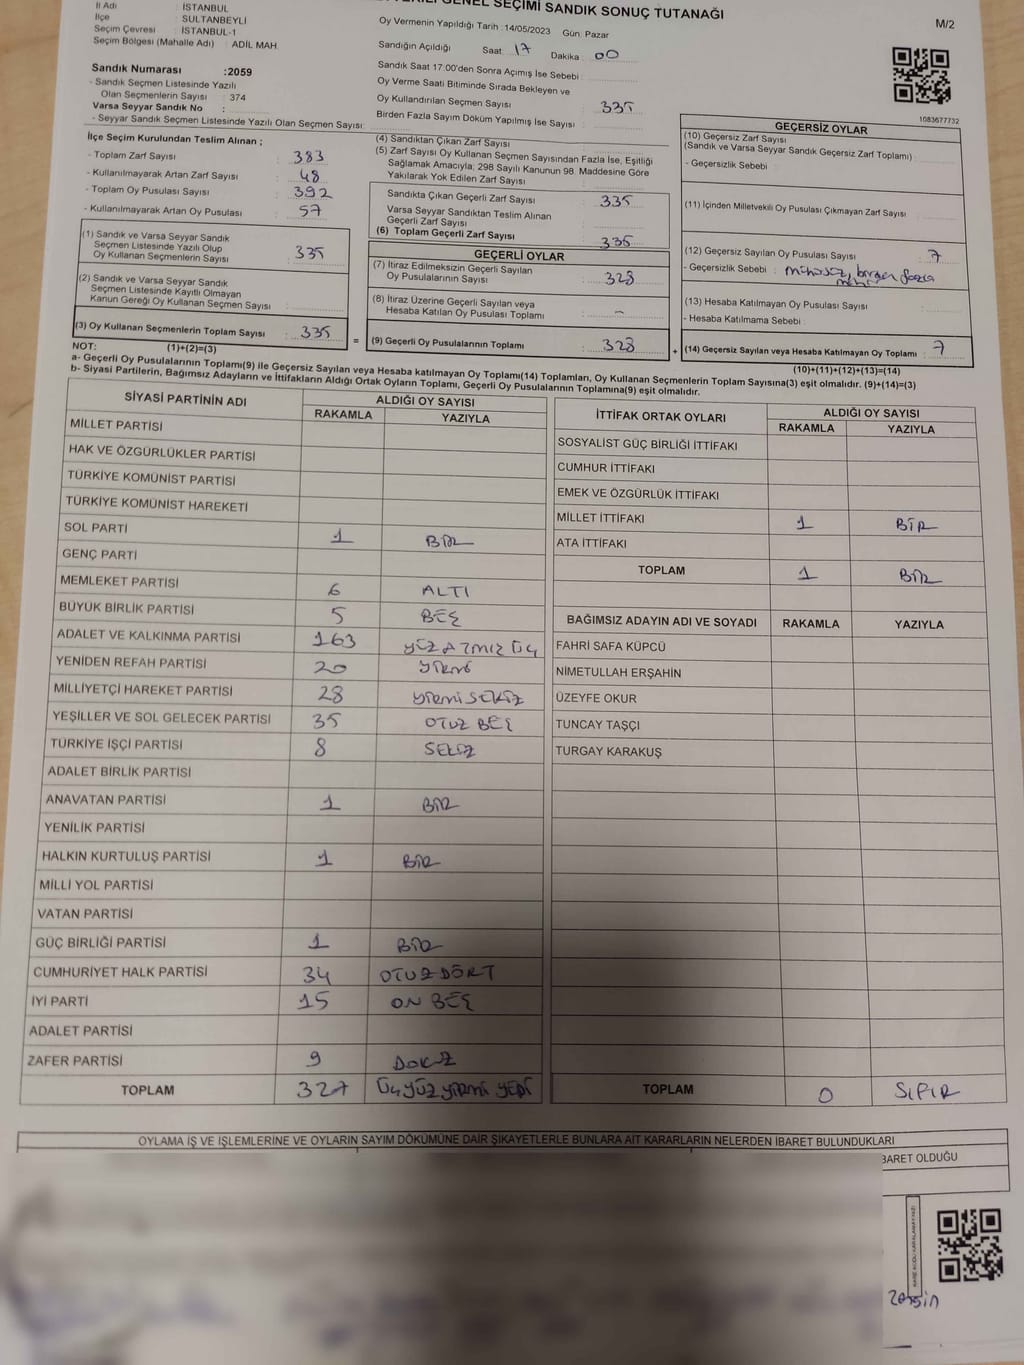 GENEL SEÇİMİ SANDIK SONUÇ TUTANAĞI
M/2
İl Adı : İSTANBUL
İlçe : SULTANBEYLİ
Seçim Çevresi : İSTANBUL-1
Seçim Bölgesi (Mahalle Adı) : ADİL MAH.
Sandık Numarası :2059
- Sandık Seçmen Listesinde Yazılı
Olan Seçmenlerin Sayısı : 374
Varsa Seyyar Sandık No :
- Seyyar Sandık Seçmen Listesinde Yazılı Olan Seçmen Sayısı:
Oy Vermenin Yapıldığı Tarih :14/05/2023 Gün: Pazar
Sandığın Açıldığı Saat 17 Dakika : 00
Sandık Saat 17:00'den Sonra Açımış İse Sebebi :
Oy Verme Saati Bitiminde Sırada Bekleyen ve
Oy Kullandırılan Seçmen Sayısı : 335
Birden Fazla Sayım Döküm Yapılmış İse Sayısı :
1083677732
İlçe Seçim Kurulundan Teslim Alınan ;
- Toplam Zarf Sayısı : 383
- Kullanılmayarak Artan Zarf Sayısı : 48
- Toplam Oy Pusulası Sayısı : 392
- Kullanılmayarak Artan Oy Pusulası : 57
(1) Sandık ve Varsa Seyyar Sandık
Seçmen Listesinde Yazılı Olup
Oy Kullanan Seçmenlerin Sayısı : 335
(2) Sandık ve Varsa Seyyar Sandık
Seçmen Listesinde Kayıtlı Olmayan
Kanun Gereği Oy Kullanan Seçmen Sayısı :
(3) Oy Kullanan Seçmenlerin Toplam Sayısı : 335
(4) Sandıktan Çıkan Zarf Sayısı :
(5) Zarf Sayısı Oy Kullanan Seçmen Sayısından Fazla İse, Eşitliği
Sağlamak Amacıyla; 298 Sayılı Kanunun 98. Maddesine Göre
Yakılarak Yok Edilen Zarf Sayısı :
Sandıkta Çıkan Geçerli Zarf Sayısı : 335
Varsa Seyyar Sandıktan Teslim Alınan
Geçerli Zarf Sayısı :
(6) Toplam Geçerli Zarf Sayısı : 335
GEÇERLİ OYLAR
(7) İtiraz Edilmeksizin Geçerli Sayılan
Oy Pusulalarının Sayısı : 328
(8) İtiraz Üzerine Geçerli Sayılan veya
Hesaba Katılan Oy Pusulası Toplamı : -
= (9) Geçerli Oy Pusulalarının Toplamı : 328
GEÇERSİZ OYLAR
(10) Geçersiz Zarf Sayısı
(Sandık ve Varsa Seyyar Sandık Geçersiz Zarf Toplamı) :
- Geçersizlik Sebebi :
(11) İçinden Milletvekili Oy Pusulası Çıkmayan Zarf Sayısı :
(12) Geçersiz Sayılan Oy Pusulası Sayısı : 7
- Geçersizlik Sebebi : mühürsüz, birden fazla
(13) Hesaba Katılmayan Oy Pusulası Sayısı :
- Hesaba Katılmama Sebebi :
+ (14) Geçersiz Sayılan veya Hesaba Katılmayan Oy Toplamı : 7
NOT: (1)+(2)=(3)
(10)+(11)+(12)+(13)=(14)
a- Geçerli Oy Pusulalarının Toplamı(9) ile Geçersiz Sayılan veya Hesaba katılmayan Oy Toplamı(14) Toplamları, Oy Kullanan Seçmenlerin Toplam Sayısına(3) eşit olmalıdır. (9)+(14)=(3)
b- Siyasi Partilerin, Bağımsız Adayların ve İttifakların Aldığı Ortak Oyların Toplamı, Geçerli Oy Pusulalarının Toplamına(9) eşit olmalıdır.
SİYASİ PARTİNİN ADI ALDIĞI OY SAYISI
RAKAMLA YAZIYLA
MİLLET PARTİSİ
HAK VE ÖZGÜRLÜKLER PARTİSİ
TÜRKİYE KOMÜNİST PARTİSİ
TÜRKİYE KOMÜNİST HAREKETİ
SOL PARTİ 1 BİR
GENÇ PARTİ
MEMLEKET PARTİSİ 6 ALTI
BÜYÜK BİRLİK PARTİSİ 5 BEŞ
ADALET VE KALKINMA PARTİSİ 163 YÜZ ATMIZ ÜÇ
YENİDEN REFAH PARTİSİ 20 YİRMİ
MİLLİYETÇİ HAREKET PARTİSİ 28 YİRMİ SEKİZ
YEŞİLLER VE SOL GELECEK PARTİSİ 35 OTUZ BEŞ
TÜRKİYE İŞÇİ PARTİSİ 8 SEKİZ
ADALET BİRLİK PARTİSİ
ANAVATAN PARTİSİ 1 BİR
YENİLİK PARTİSİ
HALKIN KURTULUŞ PARTİSİ 1 BİR
MİLLİ YOL PARTİSİ
VATAN PARTİSİ
GÜÇ BİRLİĞİ PARTİSİ 1 BİR
CUMHURİYET HALK PARTİSİ 34 OTUZ DÖRT
İYİ PARTİ 15 ON BEŞ
ADALET PARTİSİ
ZAFER PARTİSİ 9 DOKUZ
TOPLAM 327 ÜÇ YÜZ YİRMİ YEDİ
İTTİFAK ORTAK OYLARI ALDIĞI OY SAYISI
RAKAMLA YAZIYLA
SOSYALİST GÜÇ BİRLİĞİ İTTİFAKI
CUMHUR İTTİFAKI
EMEK VE ÖZGÜRLÜK İTTİFAKI
MİLLET İTTİFAKI 1 BİR
ATA İTTİFAKI
TOPLAM 1 BİR
BAĞIMSIZ ADAYIN ADI VE SOYADI RAKAMLA YAZIYLA
FAHRİ SAFA KÜPCÜ
NİMETULLAH ERŞAHİN
ÜZEYFE OKUR
TUNCAY TAŞÇI
TURGAY KARAKUŞ
TOPLAM 0 SIFIR
OYLAMA İŞ VE İŞLEMLERİNE VE OYLARIN SAYIM DÖKÜMÜNE DAİR ŞİKAYETLERLE BUNLARA AİT KARARLARIN NELERDEN İBARET BULUNDUKLARI
BARET OLDUĞU
KARE KODU KARALAMAYINIZ!